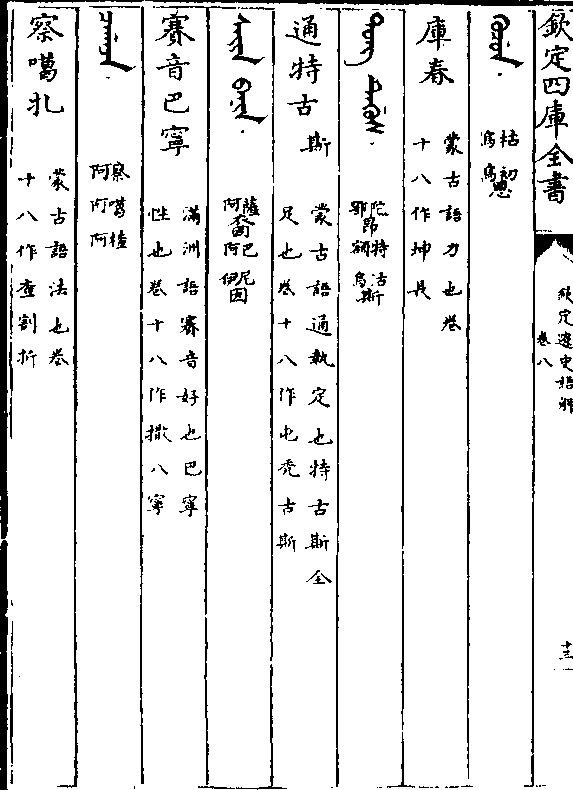 欽定四庫全書
欽定遼史語解
卷八
十三
枯初恩
烏烏
庫春
蒙古語力也卷
十八作坤長
陀昂特沽斯
鄂額烏
通特古斯
蒙古語通執定也特古斯全
足也卷十八作屯禿古斯
薩巴尼因
阿阿伊
賽音巴寧
滿洲語賽音好也巴寧
性也卷十八作撒八寧
察噶楂
阿阿阿
察噶扎
蒙古語法也卷
十八作查割折